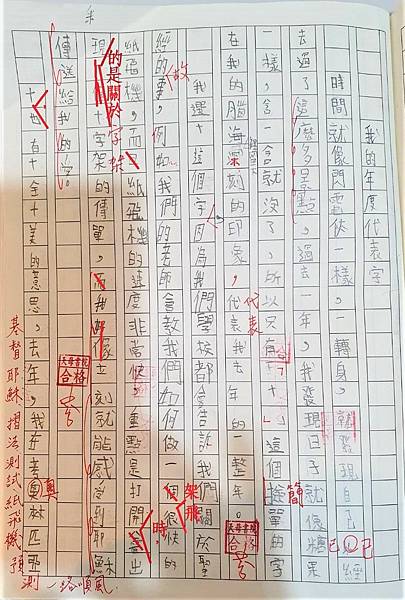 我的年度代表字
時間就像閃電俠一樣，一轉身，就發現自己已經
去過了這麼多景點，過去一年，我發現日子就像糖果
一樣，含一含就沒了，所以只有「十」這個簡單的字
在我的腦海深刻的印象，代表我去年的一整年。
我選十這個字因為我們學校都會告訴我們關於聖
經的故事，例如：我們的老師會教我們如何做一個很快的
紙飛機，而紙飛機的速度非常快，重點是打開時會出
現十字架的傳單，而我都像立刻就能感受到耶穌
傳送給我的字。
十也有十全十美的意思，去年，我在考奧林匹
的是關於
字架
故
代表
簡
架飛
時
奧
天母書院
合格
天母書院
合格
基督耶穌、摺法測試紙飛機預
測一路順風